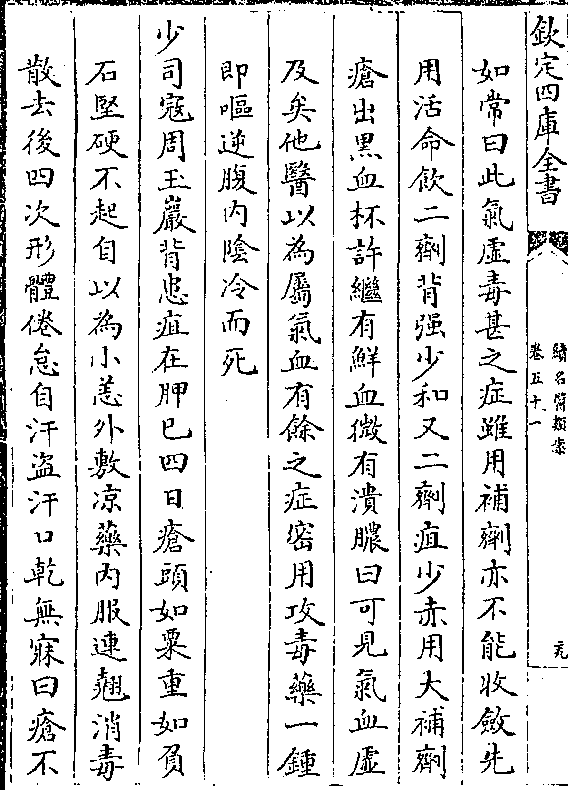 欽定四庫全書
續名醫類案
卷五十一
如常曰此氣虛毒甚之症雖用補劑亦不能收斂先
用活命飲二劑背强少和又二劑疽少赤用大補劑
瘡出黑血杯許繼有鮮血微有潰膿曰可見氣血虛
及矣他醫以為屬氣血有餘之症密用攻毒藥一鍾
即嘔逆腹内陰冷而死
少司寇周玉巖背患疽在胛已四日瘡頭如粟重如負
石堅硬不起自以為小恙外敷凉藥内服連翹消毒
散去後四次形體倦怠自汗盜汗口乾無寐曰瘡不